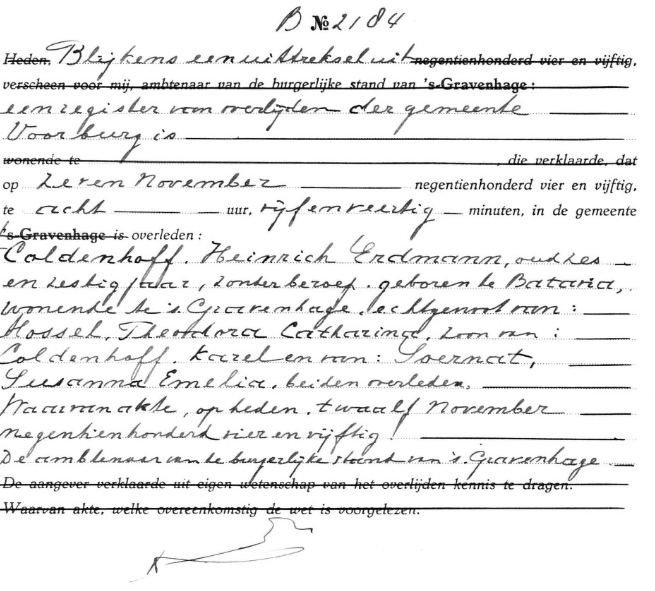 B №2184
Heden, Blijkens een uittreksel uit negentienhonderd vier en vijftig,
verscheen voor mij, ambtenaar van de burgerlijke stand van 's-Gravenhage:
een register van overlijden der gemeente
Voorburg is
wonende te , die verklaarde, dat
op zeven November negentienhonderd vier en vijftig,
te acht uur, vijfenveertig minuten, in de gemeente
's-Gravenhage is overleden:
Coldenhoff, Heinrich Erdmann, oud zes
en zestig jaar, zonder beroep, geboren te Batavia,
wonende te 's Gravenhage, echtgenoot van:
Hossel, Theodora Catharina, zoon van:
Coldenhoff, Karel en van: Soernat,
Susanna Emelia, beiden overleden.
Waarvan akte, op heden, twaalf November
negentienhonderd vier en vijftig!
De ambtenaar van de burgerlijke stand van 's Gravenhage
De aangever verklaarde uit eigen wetenschap van het overlijden kennis te dragen.
Waarvan akte, welke overeenkomstig de wet is voorgelezen.